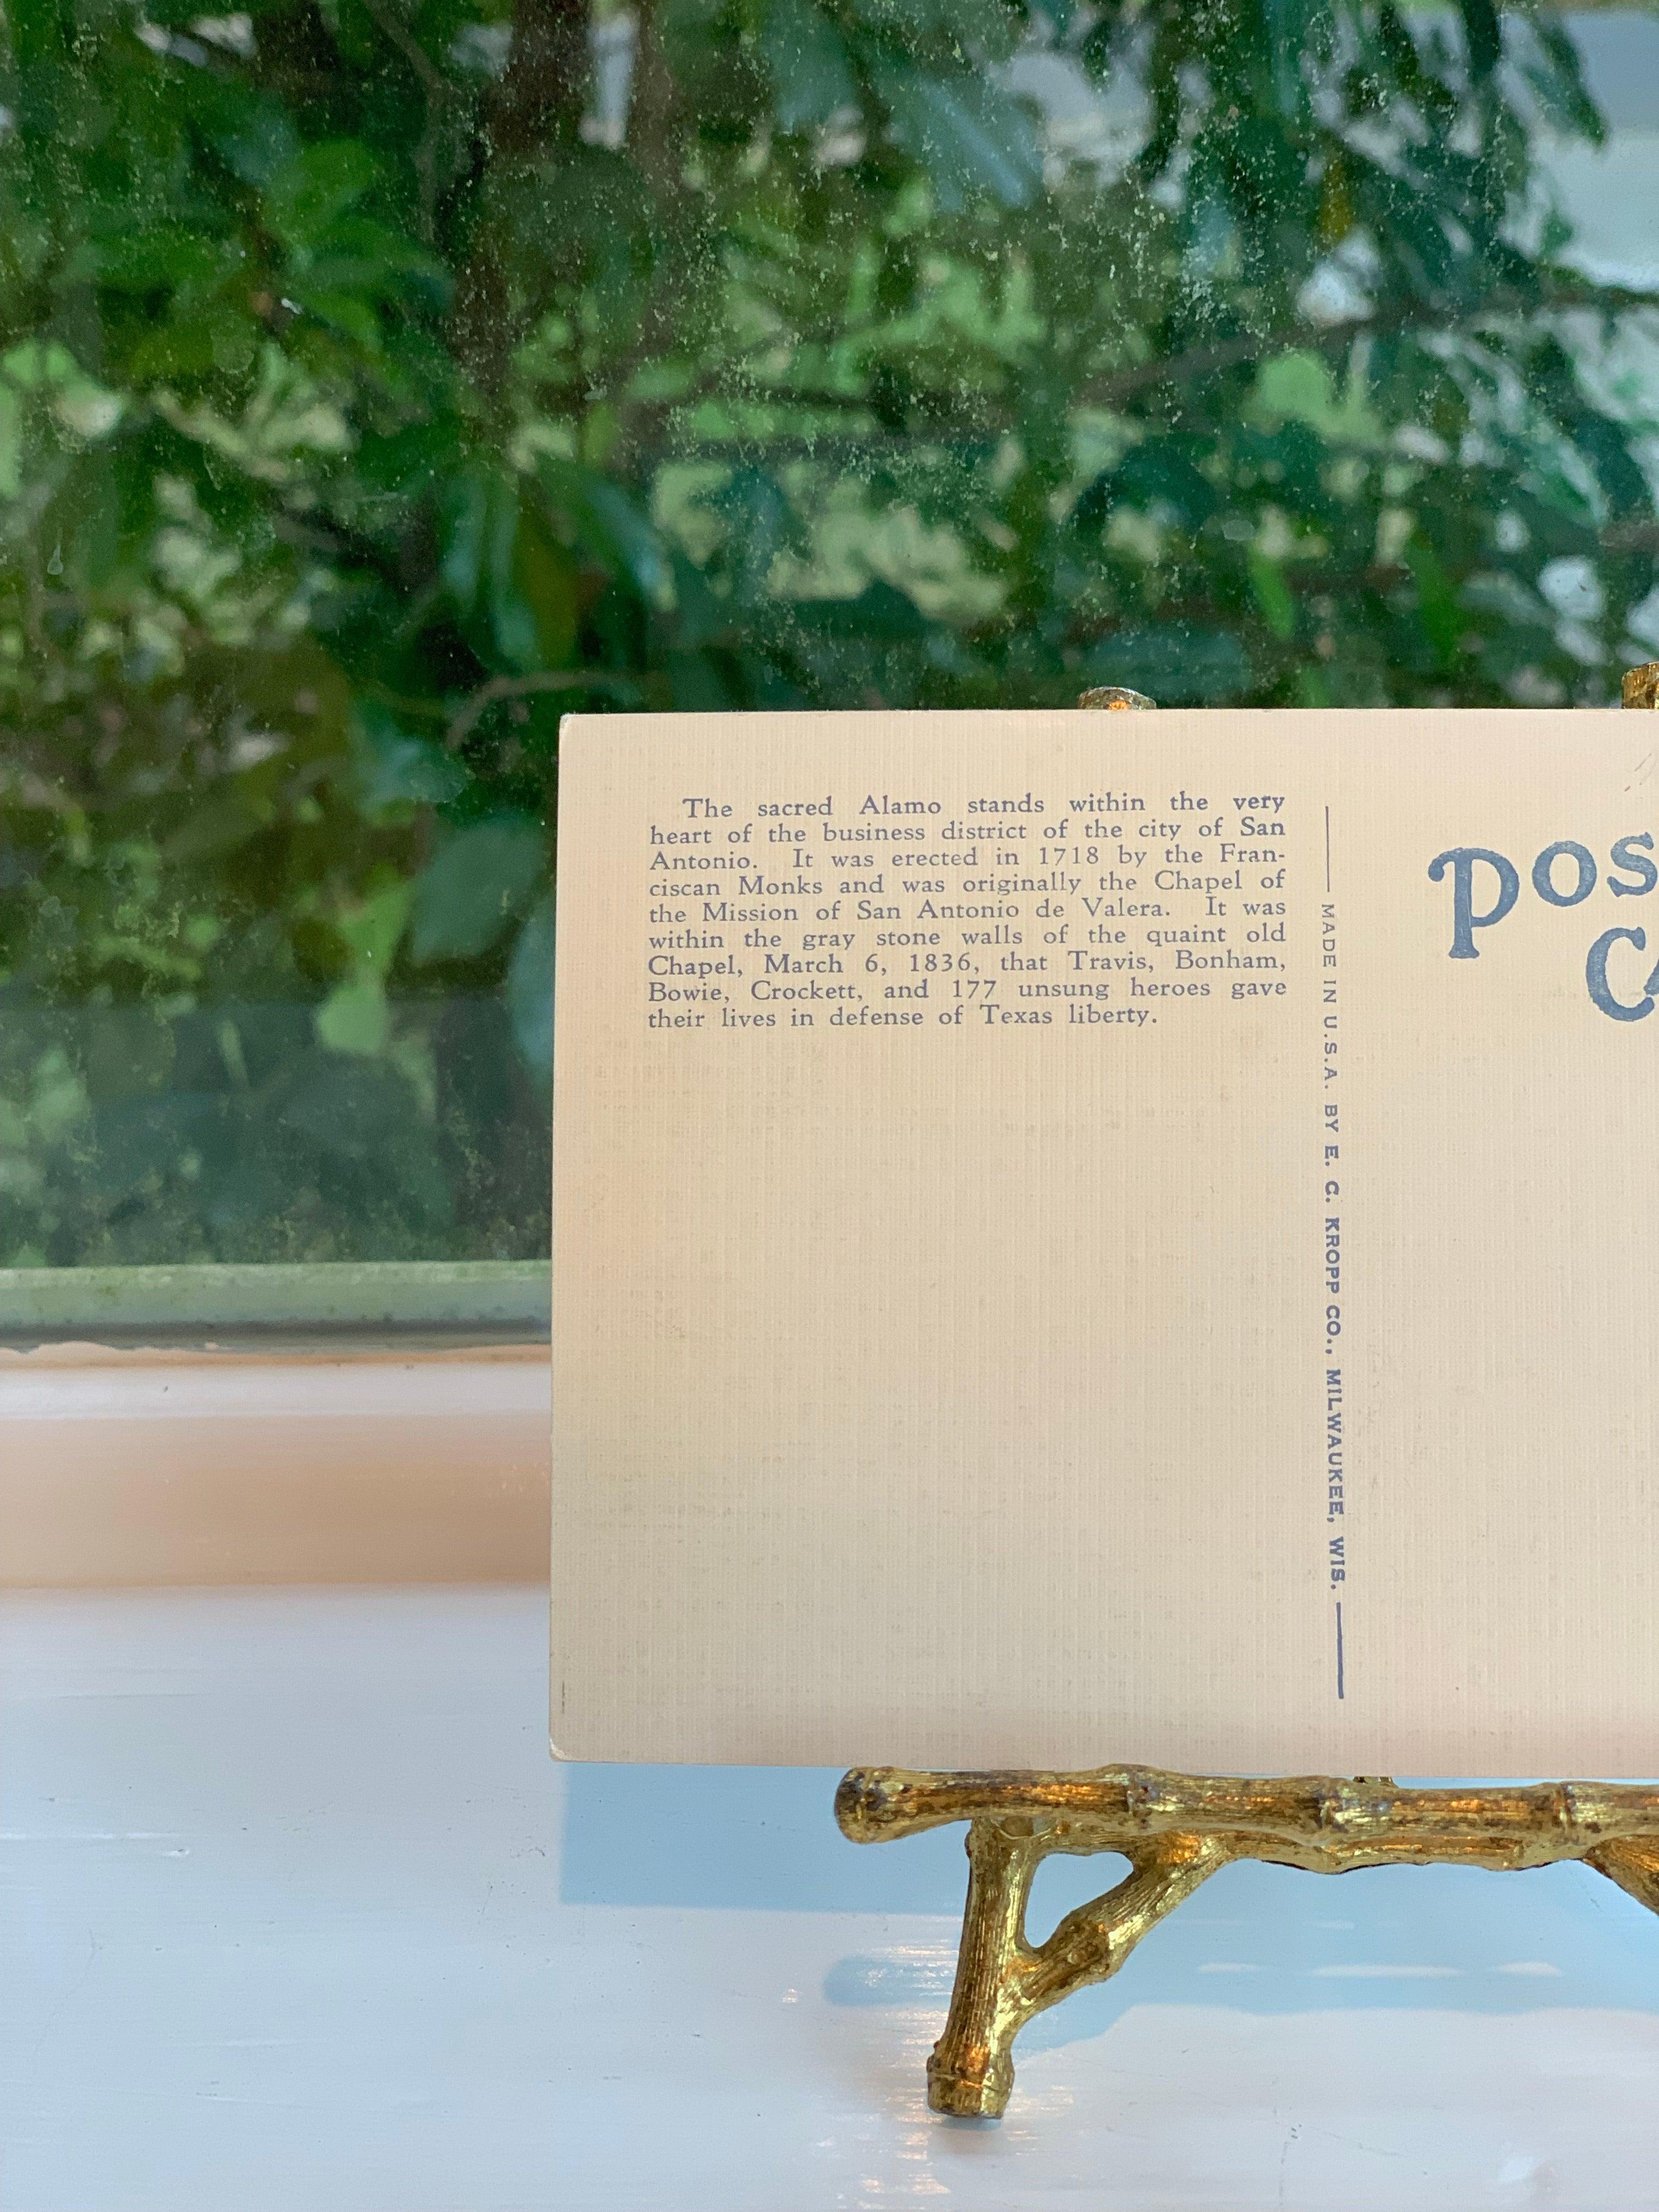 The sacred Alamo stands within the very
heart of the business district of the city of San
Antonio. It was erected in 1718 by the Fran-
ciscan Monks and was originally the Chapel of
the Mission of San Antonio de Valera. It was
within the gray stone walls of the quaint old
Chapel, March 6, 1836, that Travis, Bonham,
Bowie, Crockett, and 177 unsung heroes gave
their lives in defense of Texas liberty.
MADE IN U.S.A. BY E. C. KROPP CO., MILWAUKEE, WIS.
POS
CA